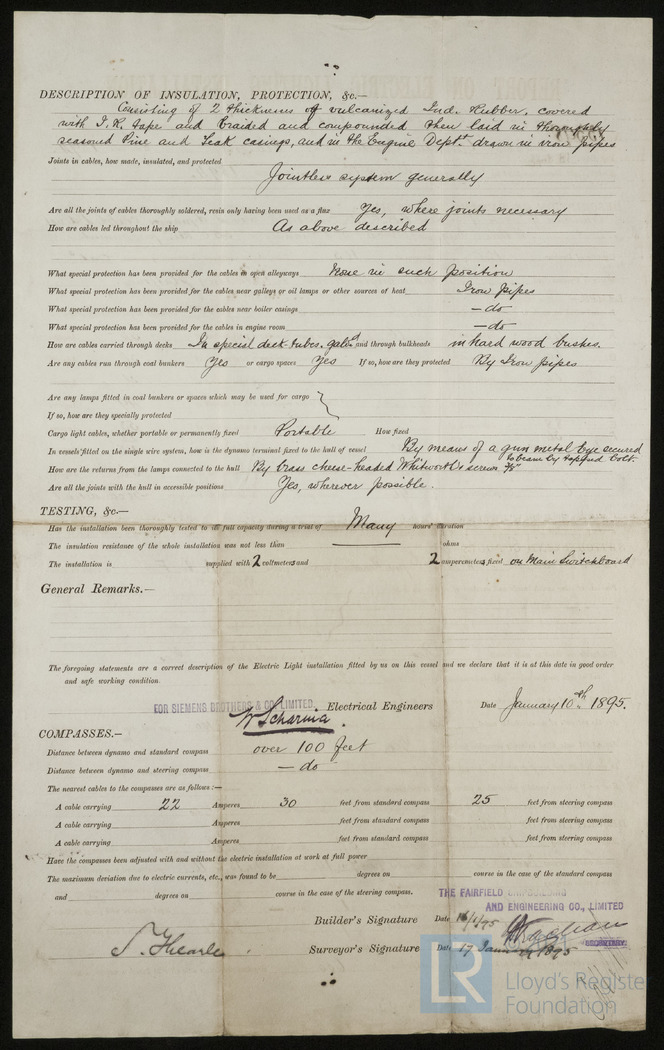 DESCRIPTION OF INSULATION, PROTECTION, &c.—
Consisting of 2 thicknesses of vulcanized Ind. Rubber, covered
with I.R. tape and braided and compounded then laid in thoroughly
seasoned Pine and Teak casings, and in the Engine Dept. drawn in iron pipes
Joints in cables, how made, insulated, and protected
Jointless system generally
Are all the joints of cables thoroughly soldered, resin only having been used as a flux Yes, where joints necessary
How are cables led throughout the ship As above described
What special protection has been provided for the cables in open alleyways None in such position
What special protection has been provided for the cables near galleys or oil lamps or other sources of heat Iron pipes
What special protection has been provided for the cables near boiler casings —do—
What special protection has been provided for the cables in engine room —do—
How are cables carried through decks In special deck tubes, galvd and through bulkheads in hard wood bushes.
Are any cables run through coal bunkers Yes or cargo spaces Yes If so, how are they protected By Iron pipes
Are any lamps fitted in coal bunkers or spaces which may be used for cargo
If so, how are they specially protected
Cargo light cables, whether portable or permanently fixed Portable How fixed
In vessels fitted on the single wire system, how is the dynamo terminal fixed to the hull of vessel By means of a gun metal bye secured
to beam by tapped bolt.
How are the returns from the lamps connected to the hull By brass cheese-headed Whitworth's screws 3/8"
Are all the joints with the hull in accessible positions Yes, wherever possible.
TESTING, &c.—
Has the installation been thoroughly tested to its full capacity during a trial of Many hours' duration
The insulation resistance of the whole installation was not less than — ohms
The installation is supplied with 2 voltmeters and 2 amperemeters fixed on Main Switchboard
General Remarks.—
The foregoing statements are a correct description of the Electric Light installation fitted by us on this vessel and we declare that it is at this date in good order
and safe working condition.
FOR SIEMENS BROTHERS & CO. LIMITED. Electrical Engineers Date January 10th 1895.
COMPASSES.—
Distance between dynamo and standard compass over 100 feet
Distance between dynamo and steering compass —do—
The nearest cables to the compasses are as follows:—
A cable carrying 22 Amperes 30 feet from standard compass 25 feet from steering compass
A cable carrying Amperes feet from standard compass feet from steering compass
A cable carrying Amperes feet from standard compass feet from steering compass
Have the compasses been adjusted with and without the electric installation at work at full power
The maximum deviation due to electric currents, etc., was found to be degrees on course in the case of the standard compass
and degrees on course in the case of the steering compass.
THE FAIRFIELD SHIPBUILDING
AND ENGINEERING CO., LIMITED
Builder's Signature Date 16/1/95
SECRETARY.
Surveyor's Signature Date 17 January 1895
LR Lloyd's Register
Foundation